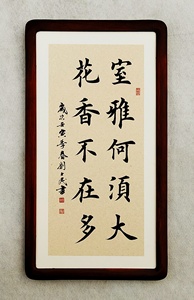 室雅何須大
花香不在多
歲次壬寅季春劉士民書